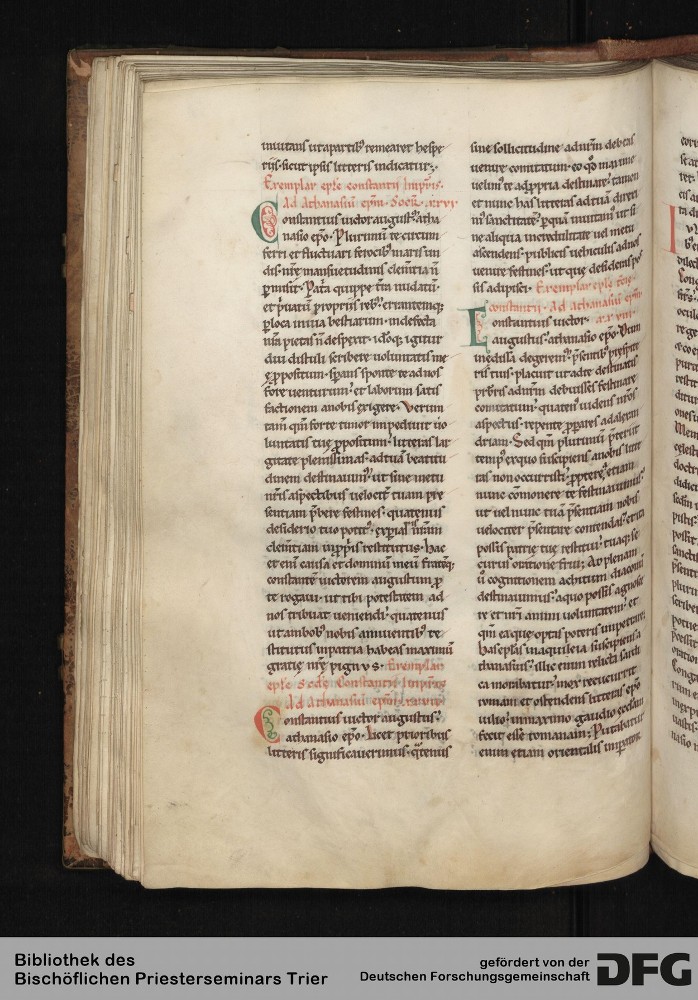 mutans ut apartib; remearet hespe
rijs. sicut ipsis litteris indicatur;.
Exemplar eple constantii Impris.
Ad Athanasiū epm. Socr̄. xxvi
Constantius uictor august; atha
nasio epo. Plurimū te circum
ferri et fluctuari ferocib; maris un
dis. nr̄e mansuetudinis clementia n̄
pmisit. Pat̄a quippe tr̄a nudatū.
et p̄uatū propriis reb; errantemq;
p loca inuia bestiarum. indefecta
nr̄a pietas n̄ despexit. idoq; igitur
diu distuli scribere uoluntatis me
ę ppositum. spans sponte te ad nos
fore uenturum. et laborum satis
factionem a nobis exigere. Verum
tam̄ qm̄ forte timor impediuit uo
luntatis tuę ppositum. litteras lar
gitate plenissimas. ad tuā beatitu
dinem destinauim; ut sine metu
nr̄is aspectibus uelociter tuam pre
sentiam p̄bere festines. quatenus
desiderio tuo potit;. exp̄ta n̄ram
clem̄tiam inpp̄ris restitutus. Hac
et eni causa et dominū meū fratrēq;
constantē uictorem augustum p
te rogaui. ut tibi potestatem ad
nos tribuat ueniendi. quatenus
ut ambob; nobis annuentib; re
stitutus in patria habeas maximū
gratię nr̄ę pignus. Exemplar
eple Scdę Constantii Impris
Ad Athanasium epm
Constantius uictor augustus.
athanasio epo. Licet prioribus
litteris significauerimus. qtenus
sine sollicitudine ad nr̄m debeas
uenire comitatum. eo qd maxime
uelim; te ad ppria destinare. tamen
et nunc has litteras ad tuā direxi
m; sanctitatē. p quam mutam; ut si
ne aliqua incredulitate uel metu
ascendens publicis uehiculis ad nos
uenire festines. ut que desideras pos
sis adipisci. Exemplar eple t̄cię
constantii. Ad Athanasiū epm.
Constantius uictor. xxviii.
augustus. athanasio epo. Dum
in edissa degerem; p̄sentib; prespite
ris tuis. placuit ut ad te destinatis
prbris ad nr̄m debuisses festinare
comitatum. quaten; uidens nr̄os
aspectus. repente ppares ad alexan
driam. Sed qm̄ plurimū p̄teriit
temp; ex quo suscipiens a nobis litte
ras non occurristi. pptere; etiam
nunc cōmonere te festinauimus.
ut uel nunc tuā p̄sentiam nobis
uelociter p̄sentare contendas. et ita
possis patrię tuę restitui. tuaq; se
curus oratione frui; Ad plenam
u̅ cognitionem achitum diaconū
destinauimus. a quo possis agnosce
re et nr̄i animi uoluntatem. et
qm̄ ea que optas poteris impetrare;
Has eplas in aquileia suscipiens a
thanasius. illic enim relicta sardi
ca morabatur. mox recucurrit
romam et ostendens litteras epo
iulio. in maximo gaudio ecclam
fecit esse romanam. Putabatur
enim etiam orientalis imperator
Bibliothek des
Bischöflichen Priesterseminars Trier
gefördert von der
Deutschen Forschungsgemeinschaft
DFG